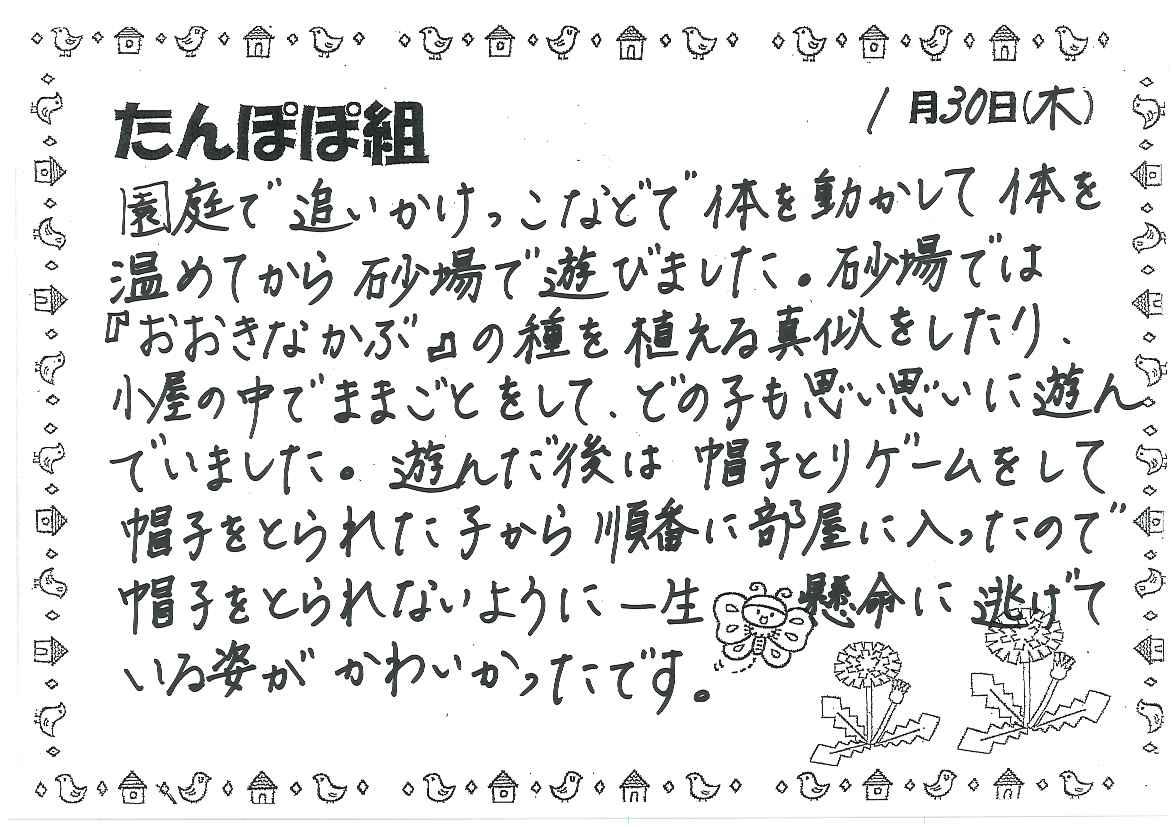 たんぽぽ組
1月30日(木)
園庭で追いかけっこなどで体を動かして体を
温めてから砂場で遊びました。砂場では
『おおきなかぶ』の種を植える真似をしたり、
小屋の中でままごとをして、どの子も思い思いに遊ん
でいました。遊んだ後は帽子とりゲームをして
帽子をとられた子から順番に部屋に入ったので
帽子をとられないように一生懸命に逃げて
いる姿がかわいかったです。